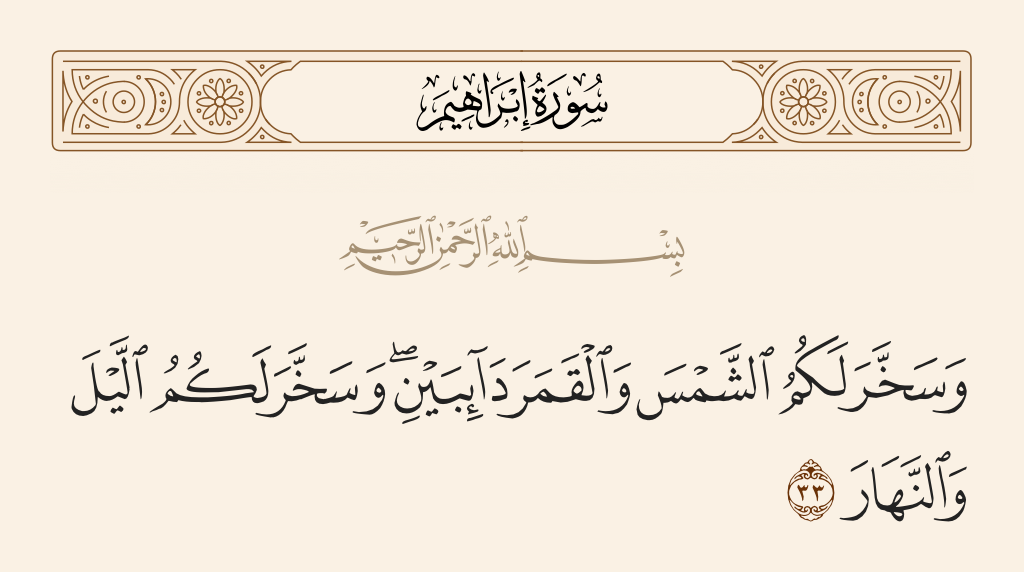 سُورَةُ إِبْرَاهِيمَ
بِسْمِ ٱللَّهِ ٱلرَّحْمَٰنِ ٱلرَّحِيمِ
وَسَخَّرَ لَكُمُ ٱلشَّمْسَ وَٱلْقَمَرَ دَآئِبَيْنِ ۖ وَسَخَّرَ لَكُمُ ٱلَّيْلَ
وَٱلنَّهَارَ ٣٣